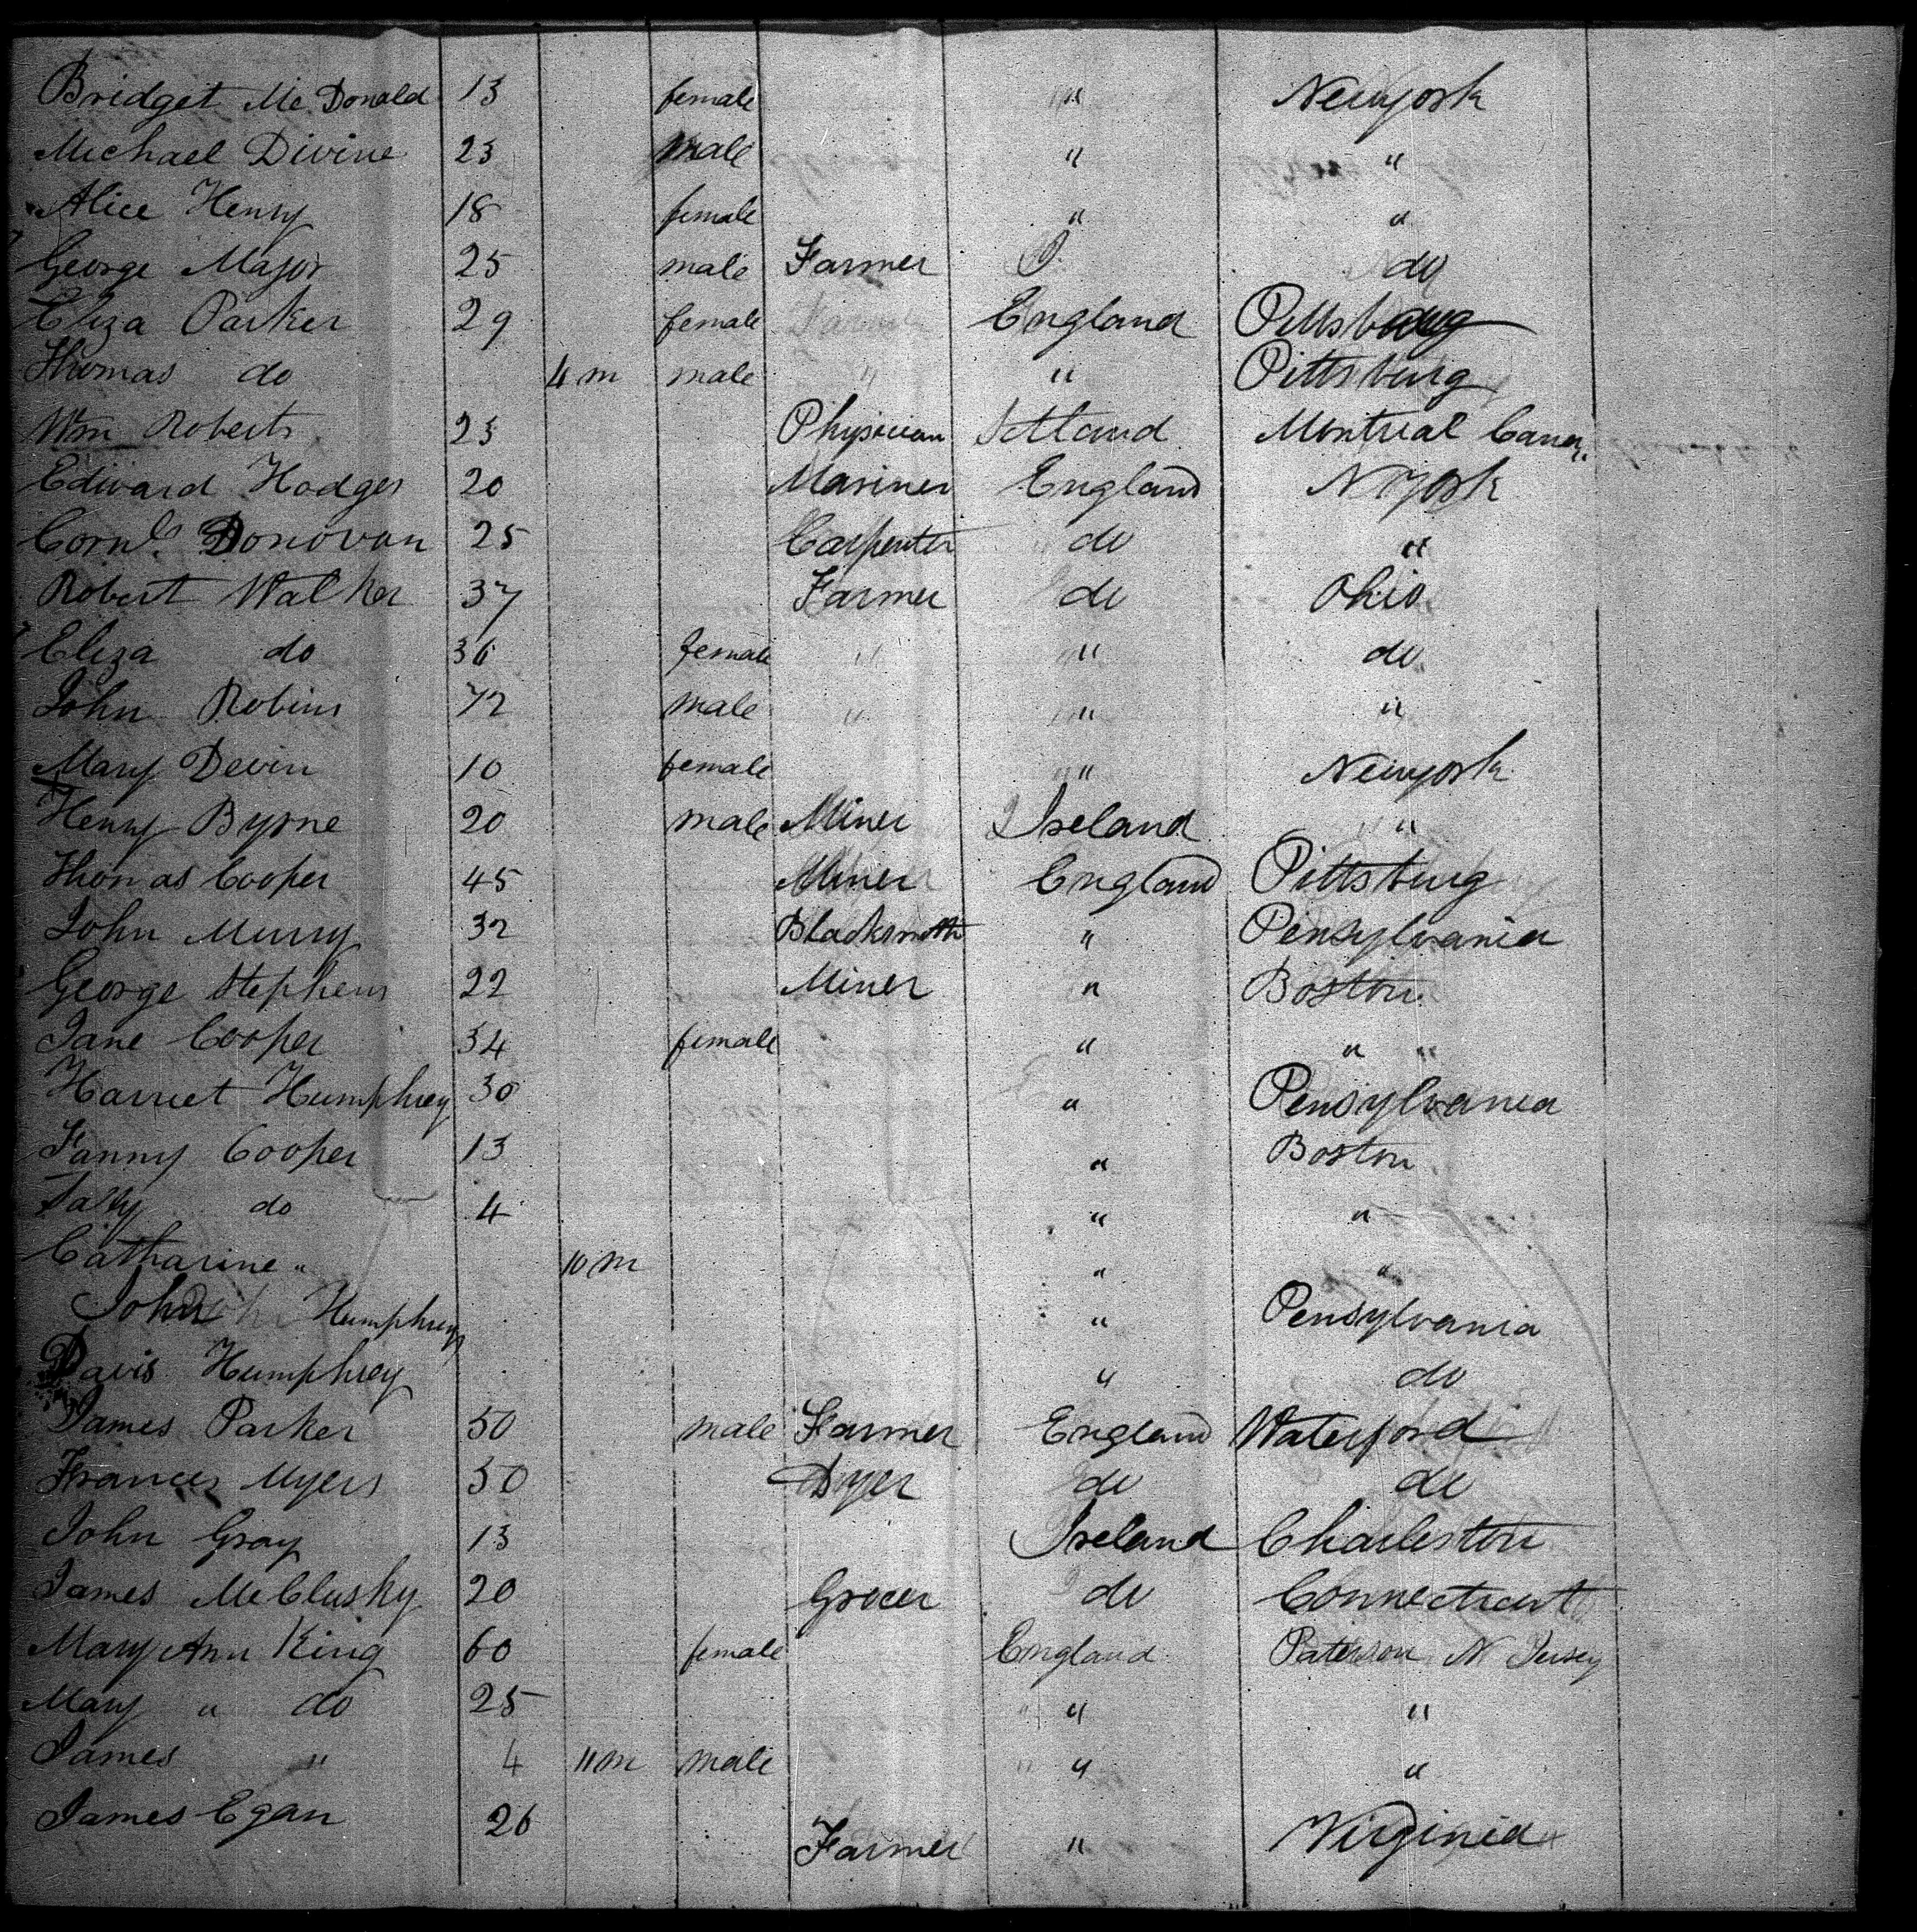 Bridget Mc Donald 13 female " Newyork
Michael Divine 23 male " "
Alice Henry 18 female " "
George Major 25 male Farmer do
Eliza Parker 29 female England Pittsburg
Thomas do 4 m male " " Pittsburg
Wm Roberts 23 Physician Montreal
Edward Hodges 20 Mariner England N York
Corns. Donovan 25 Carpenter do "
Robert Walker 37 Farmer do Ohio
Eliza do 36 female " " do
John Robins 72 male " " "
Mary Devin 10 female " Newyork
Henry Byrne 20 male Miner Ireland "
Thomas Cooper 45 Miner England Pittsburg
John Murry 32 Blacksmith " Pensylvania
George Stephens 22 Miner " Boston
Jane Cooper 34 female " "
Harriet Humphrey 30 " Pensylvania
Fanny Cooper 13 " Boston
Sally do 4 " "
Catharine " 10 m " "
John Humphrey " Pensylvania
Davis Humphrey " do
James Parker 50 male Farmer England Waterford
Frances Myers 50 Dyer do do
John Gray 13 Ireland Charleston
James McClusky 20 Grocer do Connecticut
Mary Ann King 60 female England Paterson N Jersey
Mary " do 25 " "
James " 4 11 m male " "
James Egan 26 Farmer " Virginia